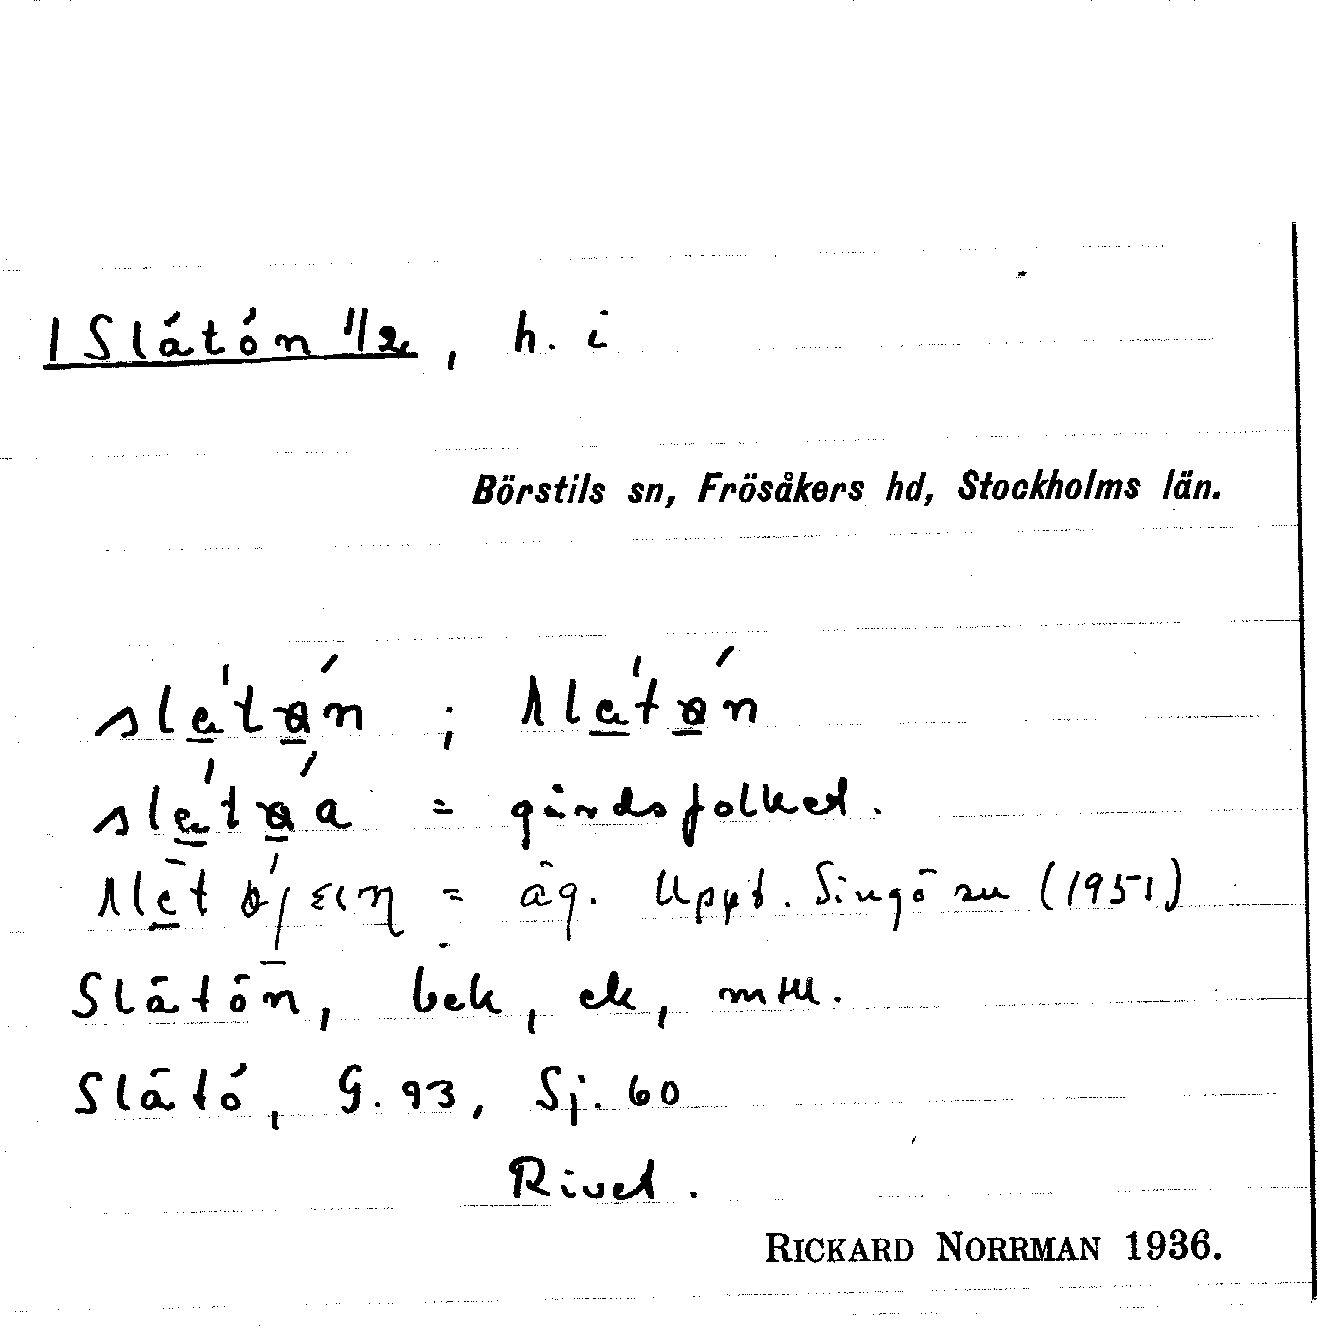 1 Slåtön 1/2, h. i
Börstils sn, Frösåkers hd, Stockholms län.
= gårdsfolket.
= äg. Uppt. Singö sn (1951)
Slåtön, bek, ek, mtl.
Slåtö, G. 93, Sj. 60
Rivet.
RICKARD NORRMAN 1936.